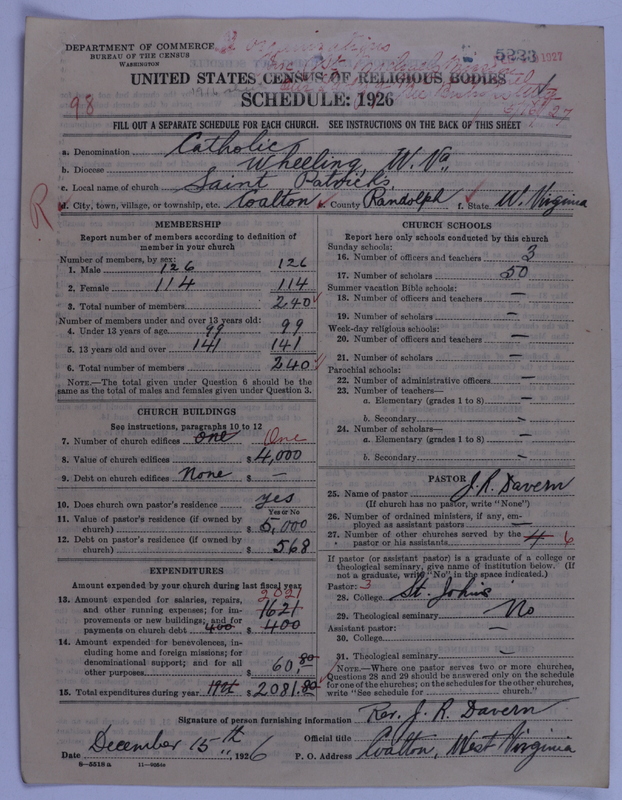 DEPARTMENT OF COMMERCE
BUREAU OF THE CENSUS
WASHINGTON
2 organizations
5233 1927
UNITED STATES CENSUS OF RELIGIOUS BODIES
SCHEDULE: 1926
98
FILL OUT A SEPARATE SCHEDULE FOR EACH CHURCH. SEE INSTRUCTIONS ON THE BACK OF THIS SHEET
a. Denomination Catholic
b. Diocese Wheeling, W. Va
c. Local name of church Saint Patrick's
R
d. City, town, village, or township, etc. Coalton e. County Randolph f. State W. Virginia
MEMBERSHIP
Report number of members according to definition of member in your church
Number of members, by sex:
1. Male 126 126
2. Female 114 114
3. Total number of members 240
Number of members under and over 13 years old:
4. Under 13 years of age 99 99
5. 13 years old and over 141 141
6. Total number of members 240
NOTE.—The total given under Question 6 should be the same as the total of males and females given under Question 3.
CHURCH BUILDINGS
See instructions, paragraphs 10 to 12
7. Number of church edifices one One
8. Value of church edifices $ 4,000
9. Debt on church edifices None $ —
10. Does church own pastor's residence yes
Yes or No
11. Value of pastor's residence (if owned by church) $ 5,000
12. Debt on pastor's residence (if owned by church) $ 568
EXPENDITURES
Amount expended by your church during last fiscal year
2021
13. Amount expended for salaries, repairs, and other running expenses; for improvements or new buildings; and for payments on church debt 400 $ 1621 400
14. Amount expended for benevolences, including home and foreign missions; for denominational support; and for all other purposes $ 60.80
15. Total expenditures during year $ 2081.80
CHURCH SCHOOLS
Report here only schools conducted by this church
Sunday schools:
16. Number of officers and teachers 3
17. Number of scholars 50
Summer vacation Bible schools:
18. Number of officers and teachers —
19. Number of scholars —
Week-day religious schools:
20. Number of officers and teachers —
21. Number of scholars —
Parochial schools:
22. Number of administrative officers —
23. Number of teachers—
a. Elementary (grades 1 to 8) —
b. Secondary —
24. Number of scholars—
a. Elementary (grades 1 to 8) —
b. Secondary —
PASTOR
25. Name of pastor J. R. Davern
(If church has no pastor, write "None")
26. Number of ordained ministers, if any, employed as assistant pastors —
27. Number of other churches served by the pastor or his assistants 4 6
If pastor (or assistant pastor) is a graduate of a college or theological seminary, give name of institution below. (If not a graduate, write "No" in the space indicated.)
Pastor: 3
28. College St. John's
29. Theological seminary No
Assistant pastor:
30. College —
31. Theological seminary —
NOTE.—Where one pastor serves two or more churches, Questions 28 and 29 should be answered only on the schedule for one of the churches; on the schedules for the other churches, write "See schedule for church."
Signature of person furnishing information Rev. J. R. Davern
Official title
Date December 15th, 1926 P. O. Address Coalton, West Virginia
8—5518a 11—9264a